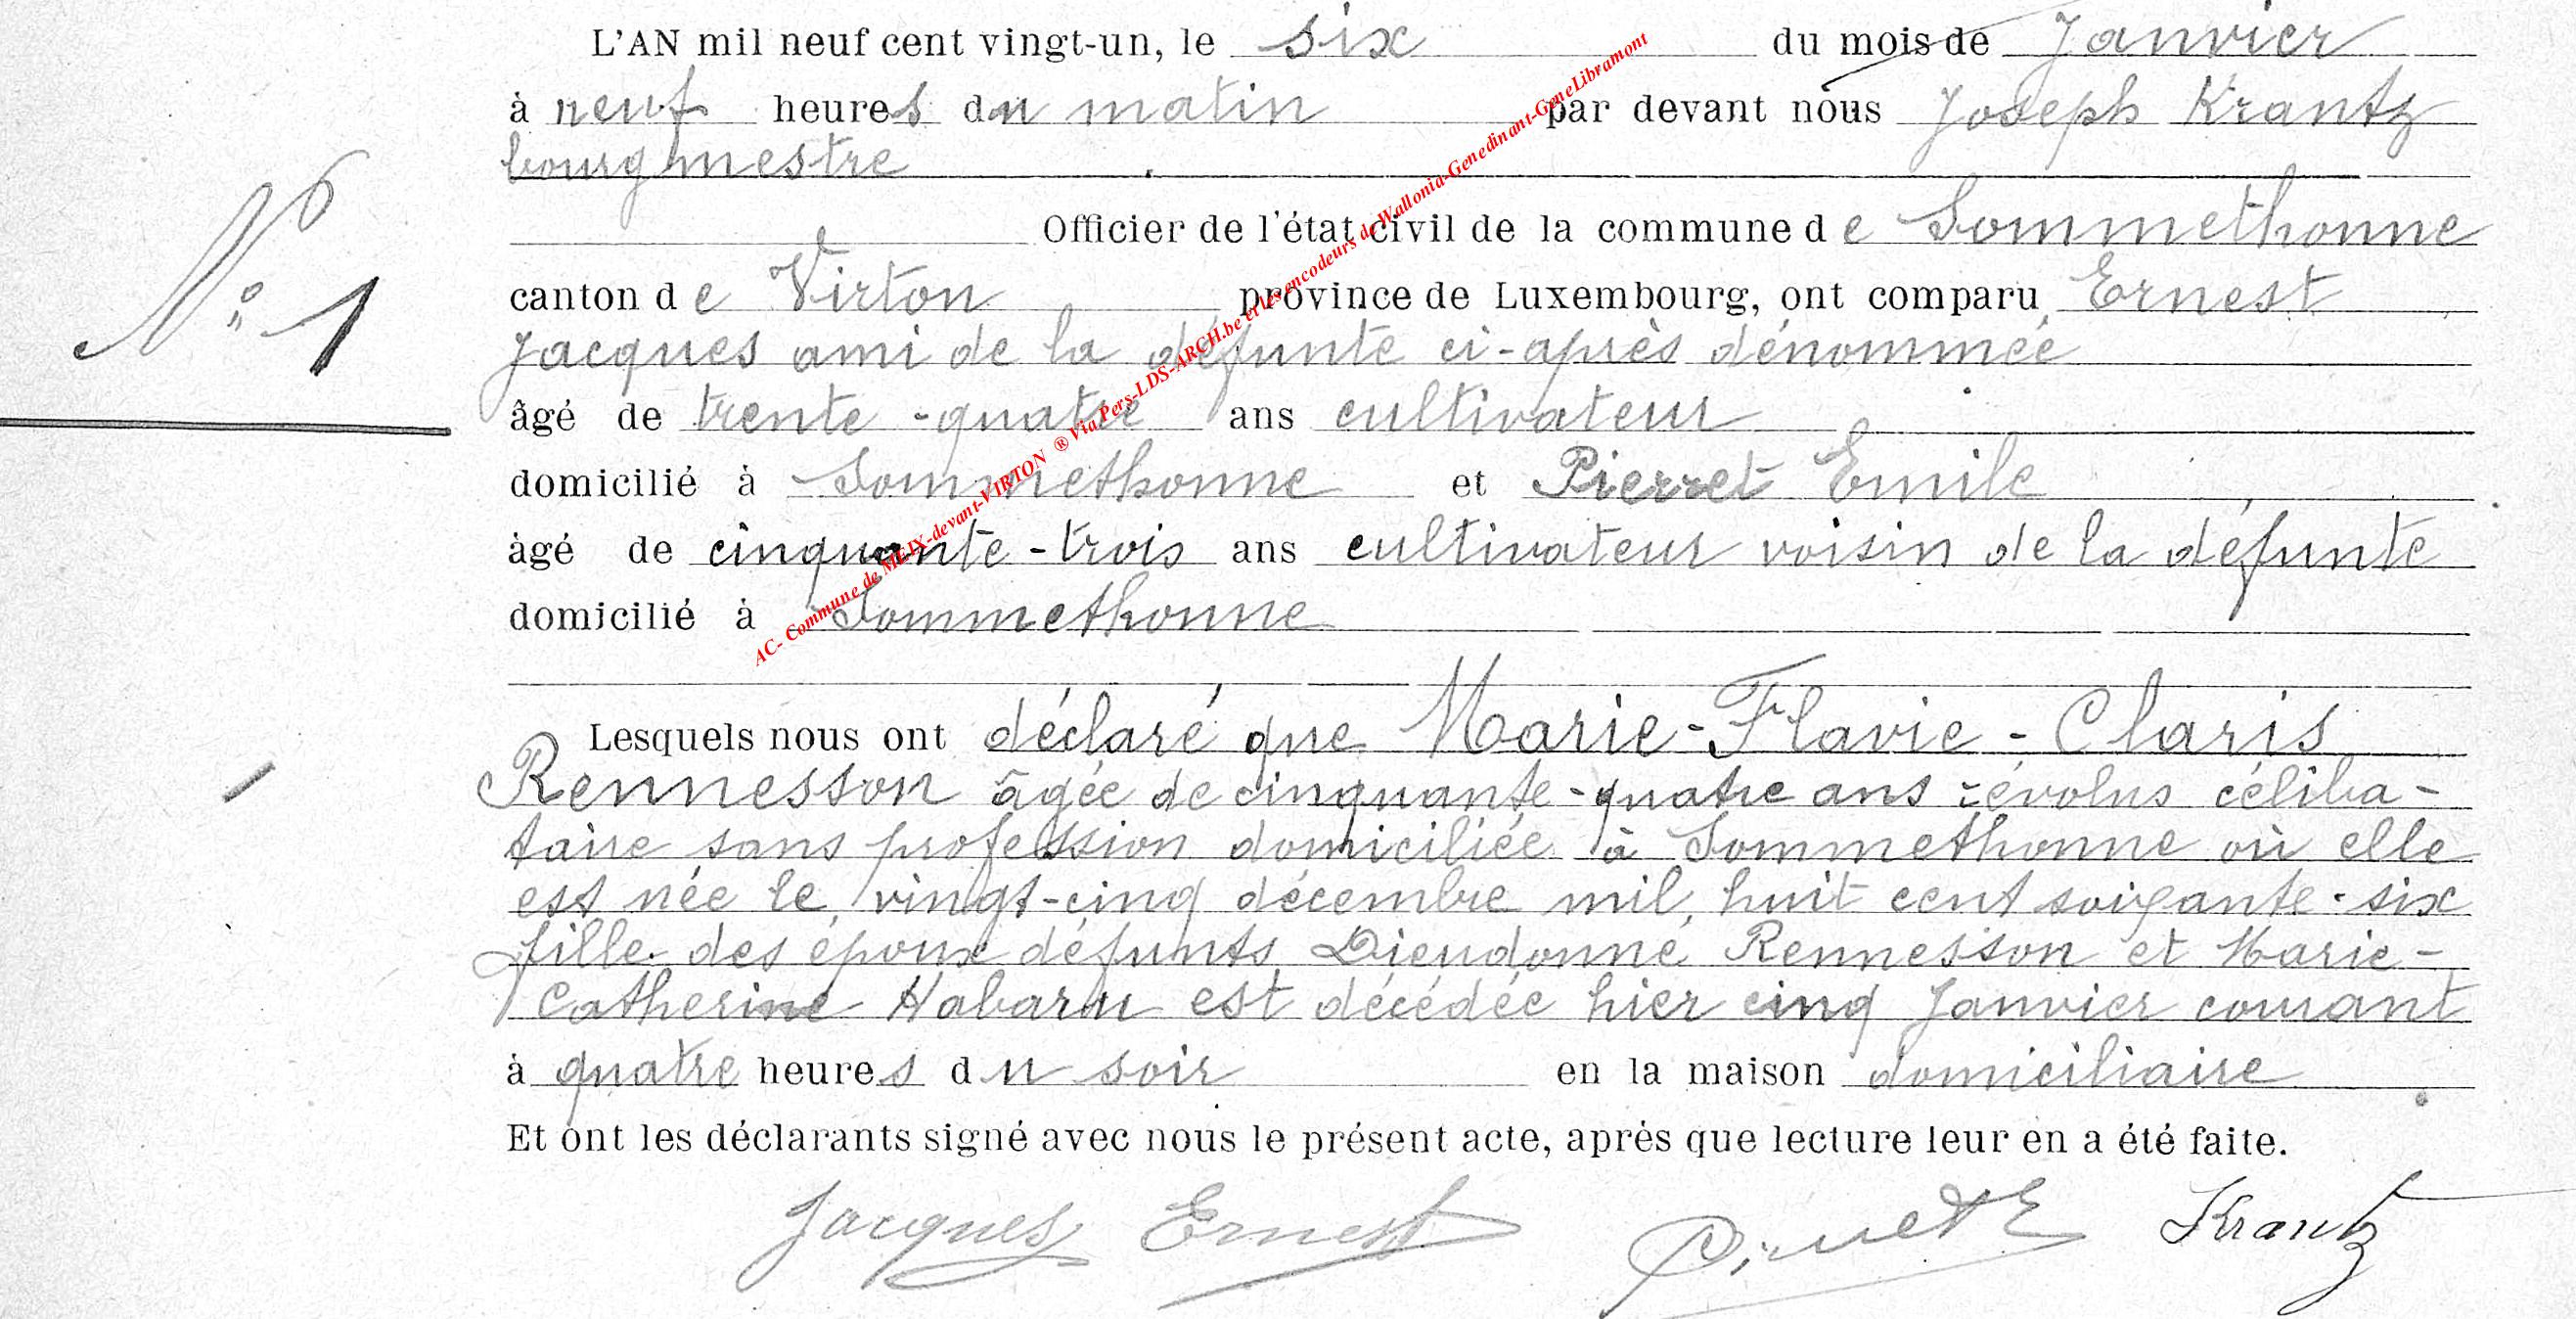 L'AN mil neuf cent vingt-un, le six du mois de Janvier
à neuf heures du matin par devant nous Joseph Krantz
bourgmestre
Officier de l'état civil de la commune de Sommethonne
N° 1
canton de Virton province de Luxembourg, ont comparu Ernest
Jacques ami de la défunte ci-après dénommée
âgé de trente-quatre ans cultivateur
domicilié à Sommethonne et Pierret Emile
âgé de cinquante-trois ans cultivateur voisin de la défunte
domicilié à Sommethonne
Lesquels nous ont déclaré que Marie-Flavie-Claris
Rennesson âgée de cinquante-quatre ans révolus céliba-
taire sans profession domiciliée à Sommethonne où elle
est née le vingt-cinq décembre mil huit cent soixante-six
fille des époux défunts Dieudonné Rennesson et Marie-
Catherine Habaru est décédée hier cinq Janvier courant
à quatre heures du soir en la maison domiciliaire
Et ont les déclarants signé avec nous le présent acte, après que lecture leur en a été faite.
Jacques Ernest Pierret E Krantz
AC- Commune de MEIX-devant-VIRTON ® Via Pers-LDS-ARCH.be et les encodeurs de Wallonia-Genedinant-GeneLibramont